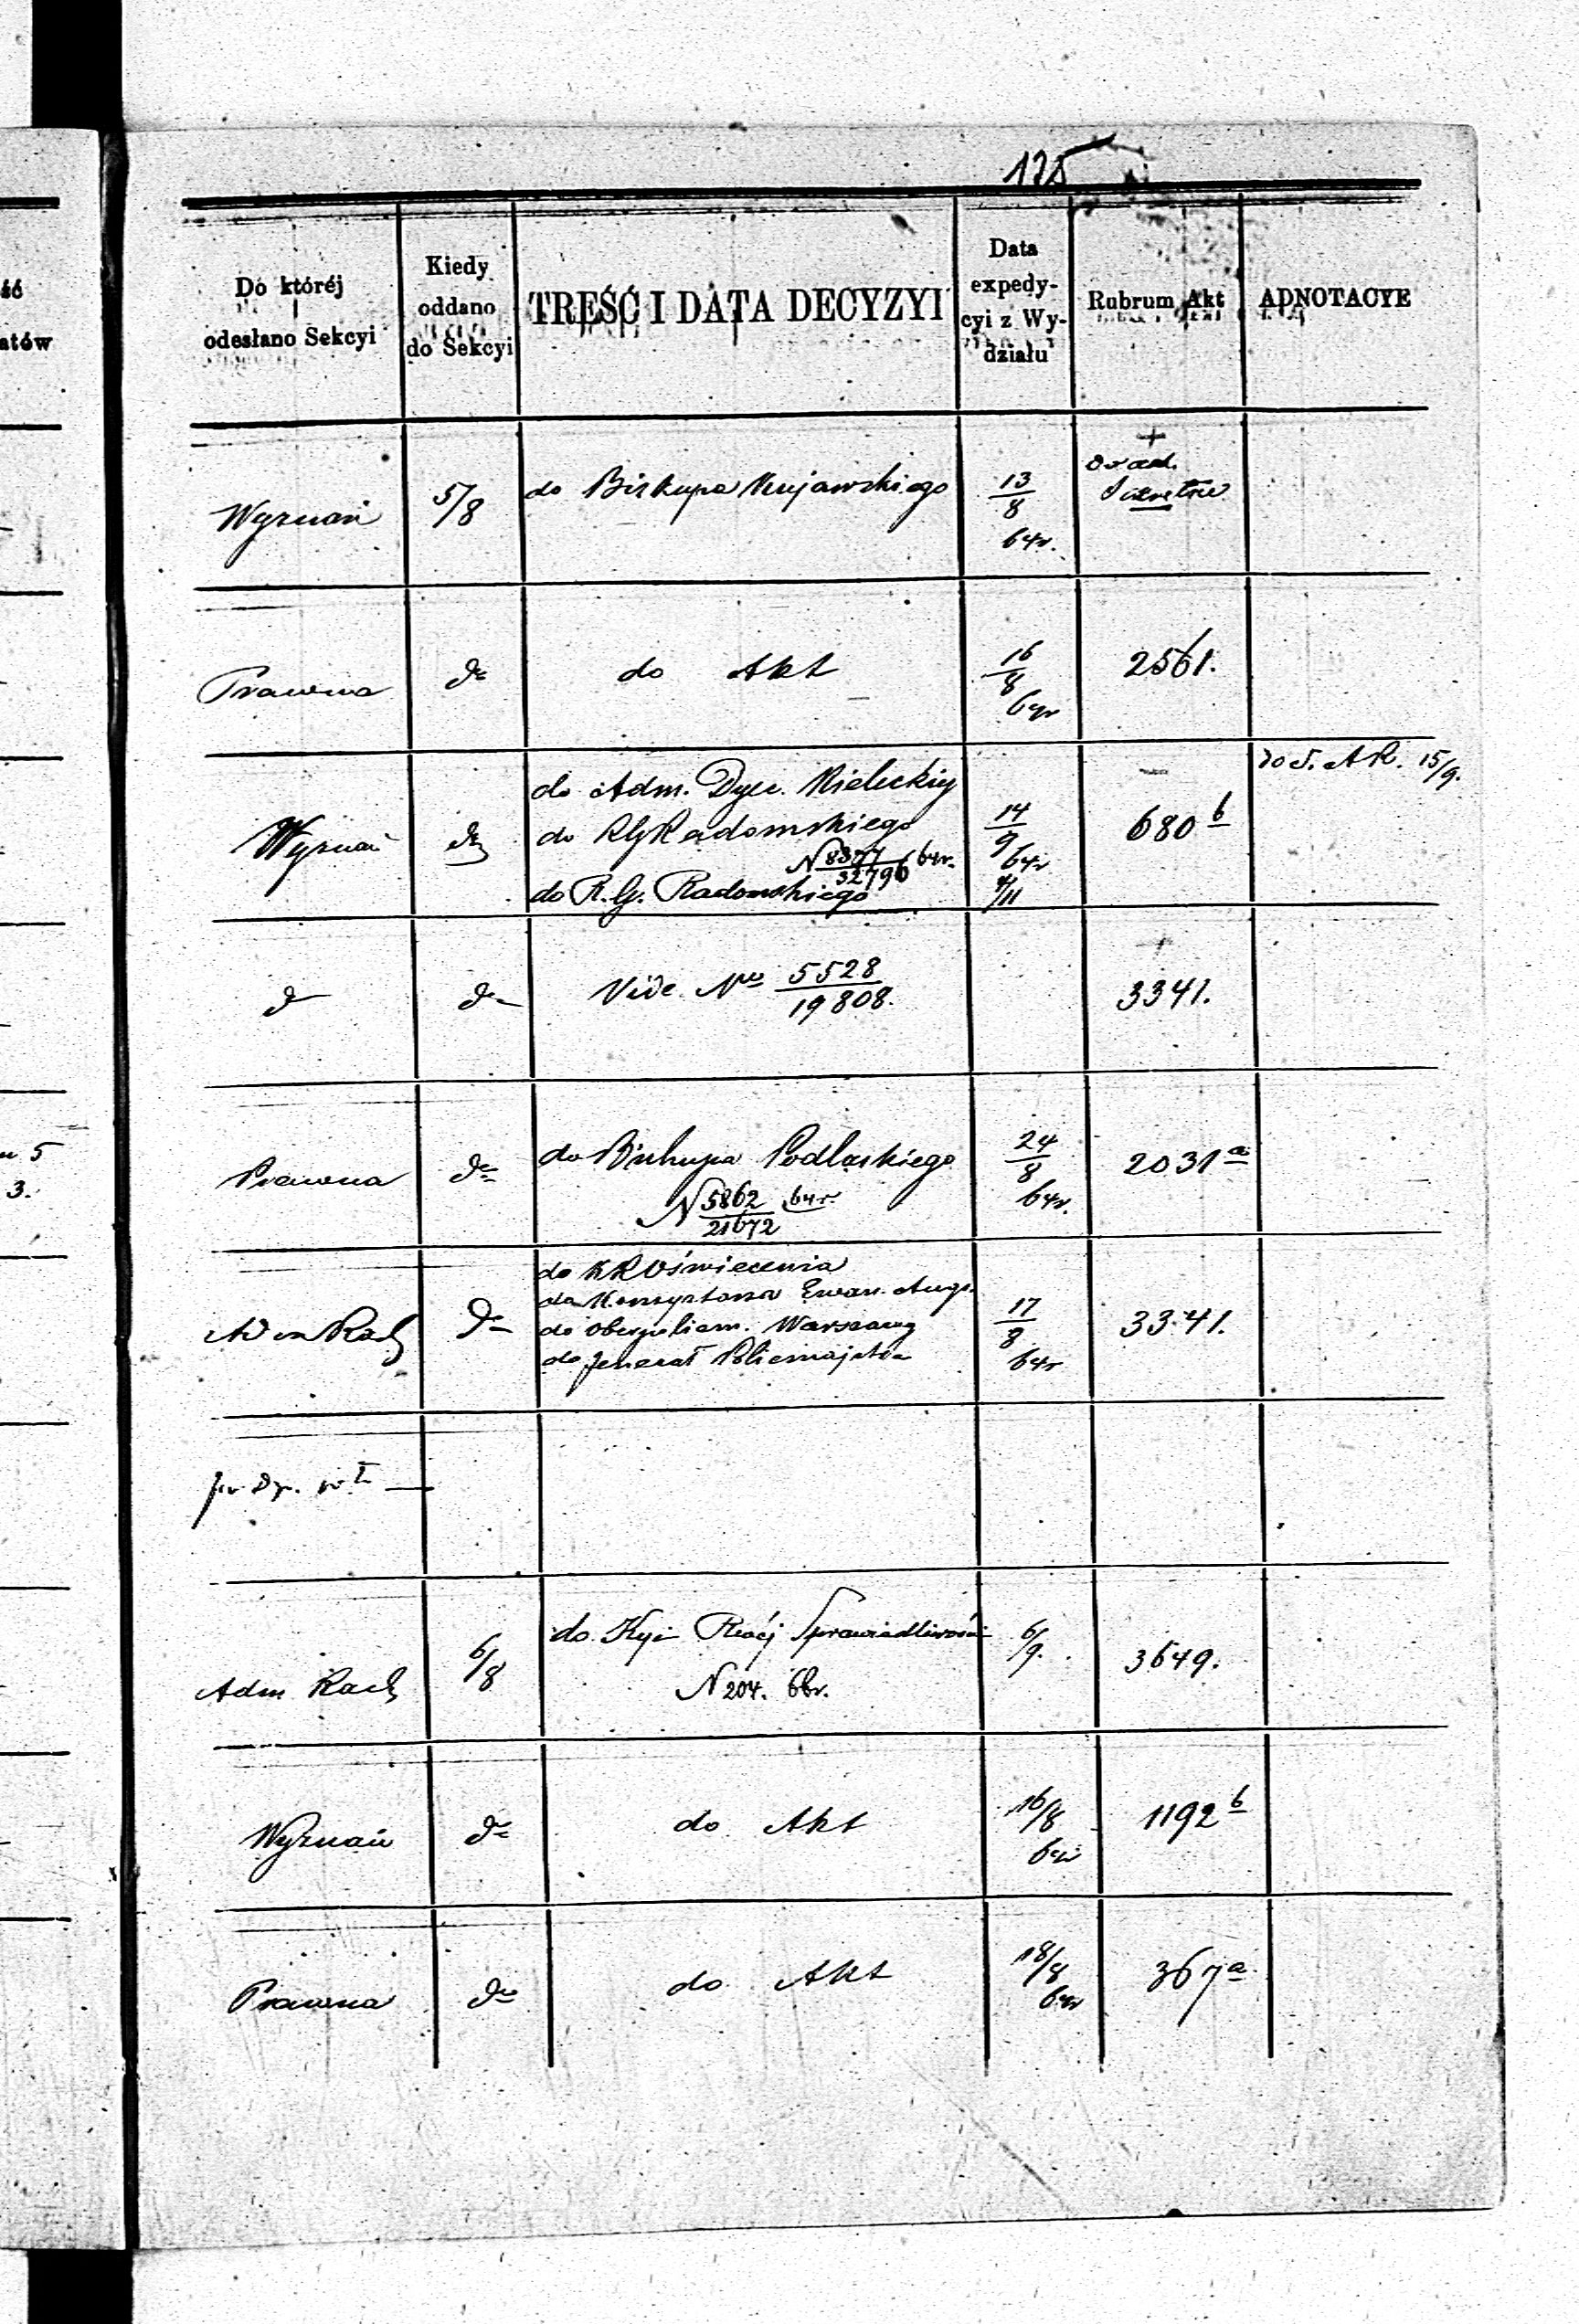 175
Do któréj odesłano Sekcyi
Kiedy oddano do Sekcyi
TREŚĆ I DATA DECYZYI
Data expedy-cyi z Wy-działu
Rubrum Akt
ADNOTACYE
Wyznań 5/8 do Biskupa Kujawskiego 13/8 64r.
Prawna do do Akt 16/8 64r 2561.
do Adm. Dyec. Kieleckiej do S. Ak. 15/9.
Wyznań do do RG Radomskiego 14/9 64r 680 b
N 8377/32796 64r.
do R. G. Radomskiego 4/11
do do Vide No 5528/19808. 3341.
Prawna do do Biskupa Podlaskiego 24/8 64r. 2031 a
N 5862/21672 64r.
do KR Oświecenia
do Konsystorza Ewan. Augs.
Adm Rach do do Oberpolicm. Warszawy 17/8 64r 3341.
do Jenerał Policmajstra
Adm Rach 6/8 do Kyi Rząj Sprawiedliwości 6/9. 3649.
N 204. 66r.
Wyznań do do Akt 16/8 64r 1192 b
Prawna do do Akt 18/8 64r 367 a
ść
atów
5
3.